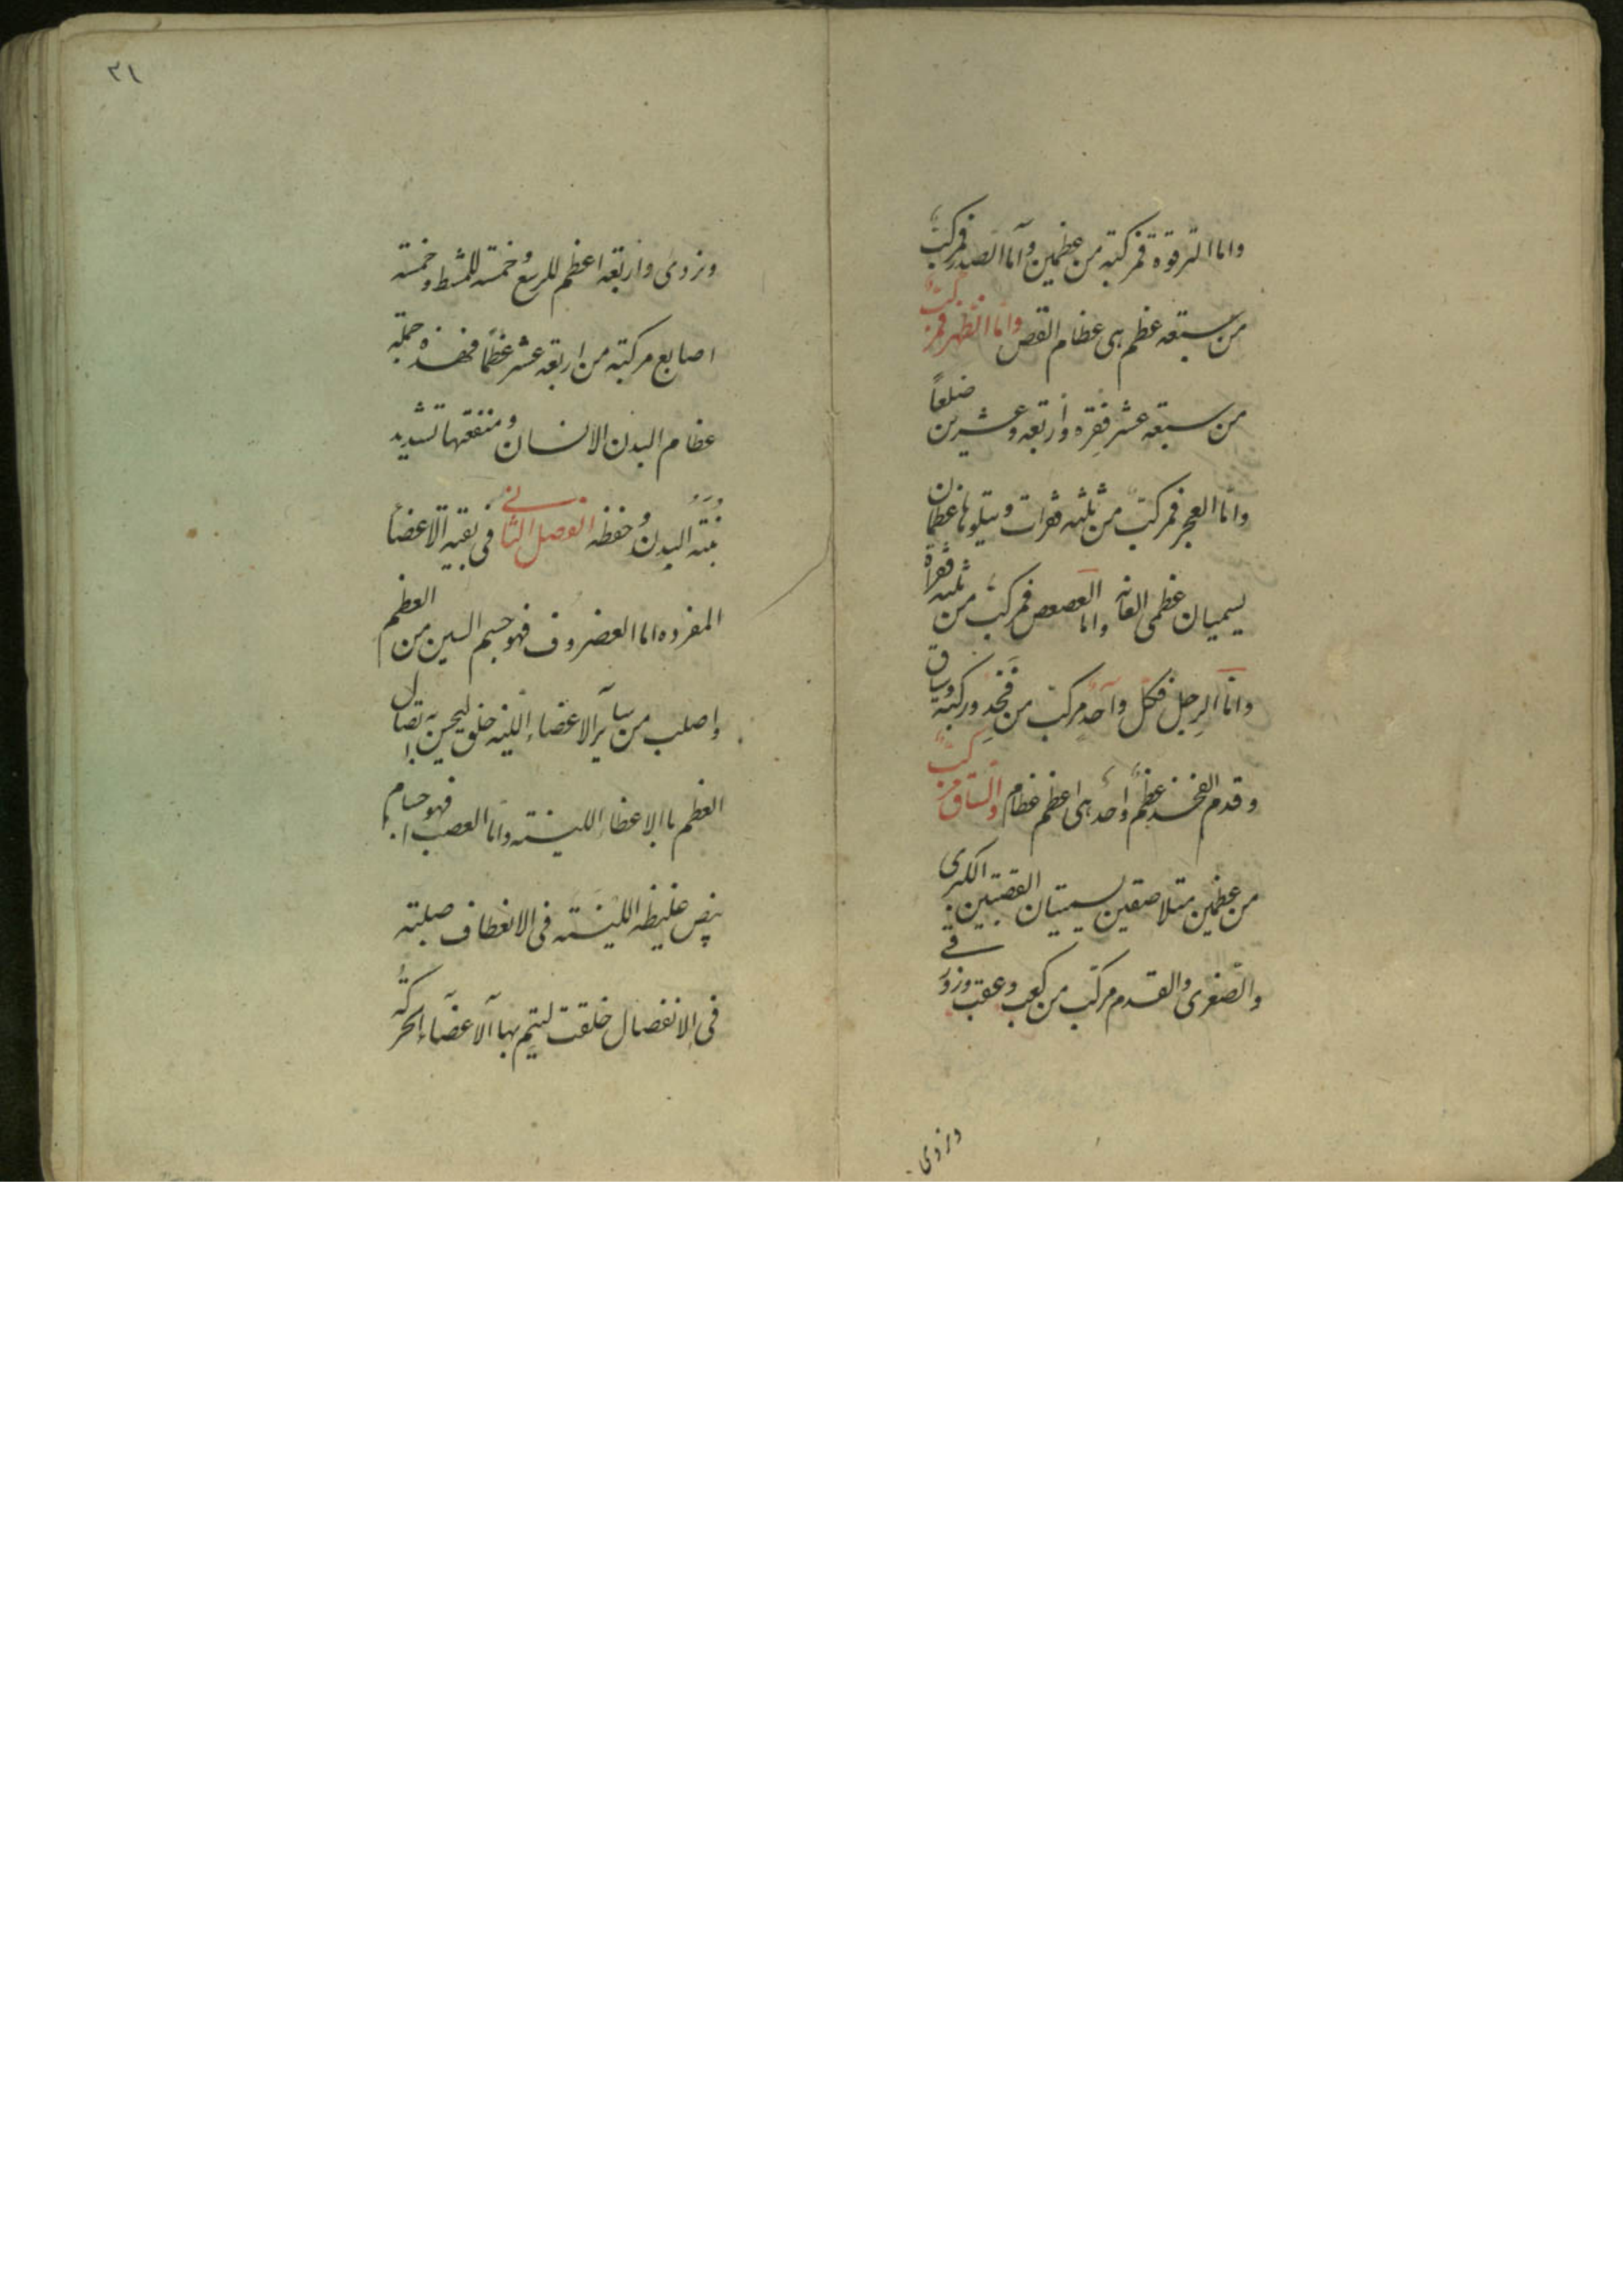 واما الترقوة فمركبته من عظمين وأما الصدر فمركبٌ
من سبعه عظم هى عظام القص واما الظهر فمركبٌ
من سبعه عشر فقره واربعه وعشرين ضلعاً
واما العجز فمركب من ثلثه فقرات ويتلوها عظمان
يسميان عظمى العانه واما العصعص فمركب من ثلثه فقراة
واما الرجل فكل واحد مركب من فخد وركبته وساق
وقدم الفخذ عظم واحد هى اعظم عظام والساق مركبٌ
من عظمين متلاصقين يسميان القصبتين الكبرى
والصغرى والقدم مركب من كعب وعقب وزورقے
وزدى
٣١
ونردى واربعه اعظم للرسغ وخمسته للمشط وخمسته
اصابع مركبته من اربعه عشر عظما فهذه جملته
عظام البدن الانسان ومنفعتها تشديد
البدن وحفظه الفصل الثانے فى بقيه الاعضأ
المفرده اما العضروف فهو جسم الين من العظم
واصلب من سأير الاعضاء اللينه خلق ليحسن به اتصال
العظم باالاعظاء اللينته واما العصب فهو اجسام
بيض غليظه اللينته فى الانعطاف صلبته
فى الانفصال خلقت ليتم بها الاعضاء الحركه